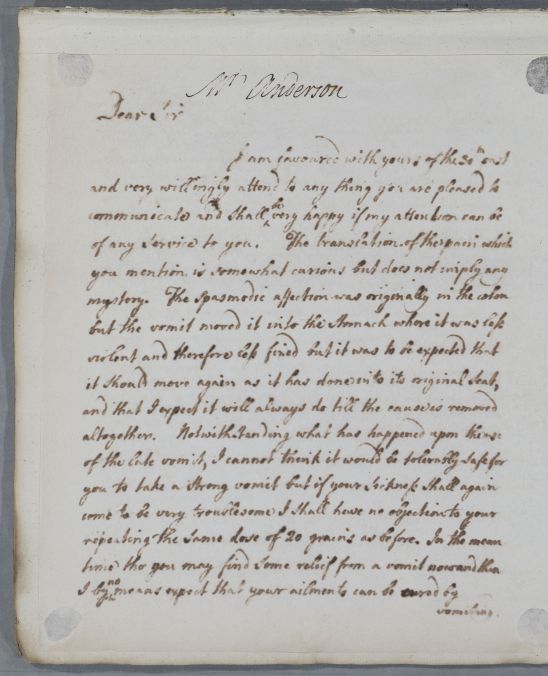 Mr Anderson
Dear Sir
I am favoured with yours of the 30th
and very willingly attend to any thing you are pleased to
communicate and shall be very happy if my attention can be
of any service to you. The translation of the pain which
you mention is somewhat curious but does not imply any
mystery. The spasmodic affection was originally in the colon
but the vomit moved it into the Stomach where it was less
violent and therefore less fixed but it was to be expected that
it should move again as it has done into its original Seat,
and that I expect it will always do till the cause is removed
altogether. Notwithstanding what has happened upon the use
of the late vomit, I cannot think it would be tolerably safe for
you to take a strong vomit but if your Sickness shall again
come to be very troublesome I shall have no objection to your
repeating the same dose of 20 grains as before. In the mean
time tho you may find some relief from a vomit now and then
I by no means expect that your ailments can be cured by
vomiting.